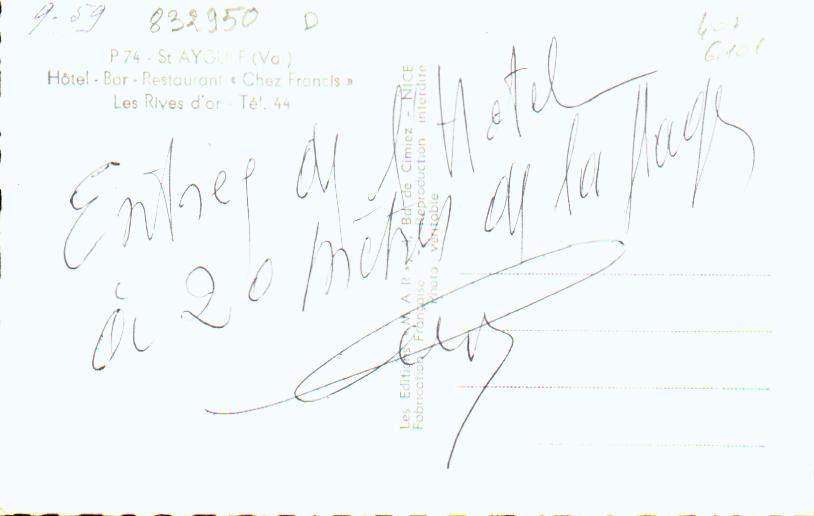 9-59 832950 D
P 74 - St AYGULF (Var)
Hôtel - Bar - Restaurant « Chez Francis »
Les Rives d'or - Tél. 44
Entrée de l'Hotel
à 20 mètres de la plage
Les Editions "M A R", Bd. de Cimiez - NICE
Fabrication Française - Reproduction interdite
Photo véritable